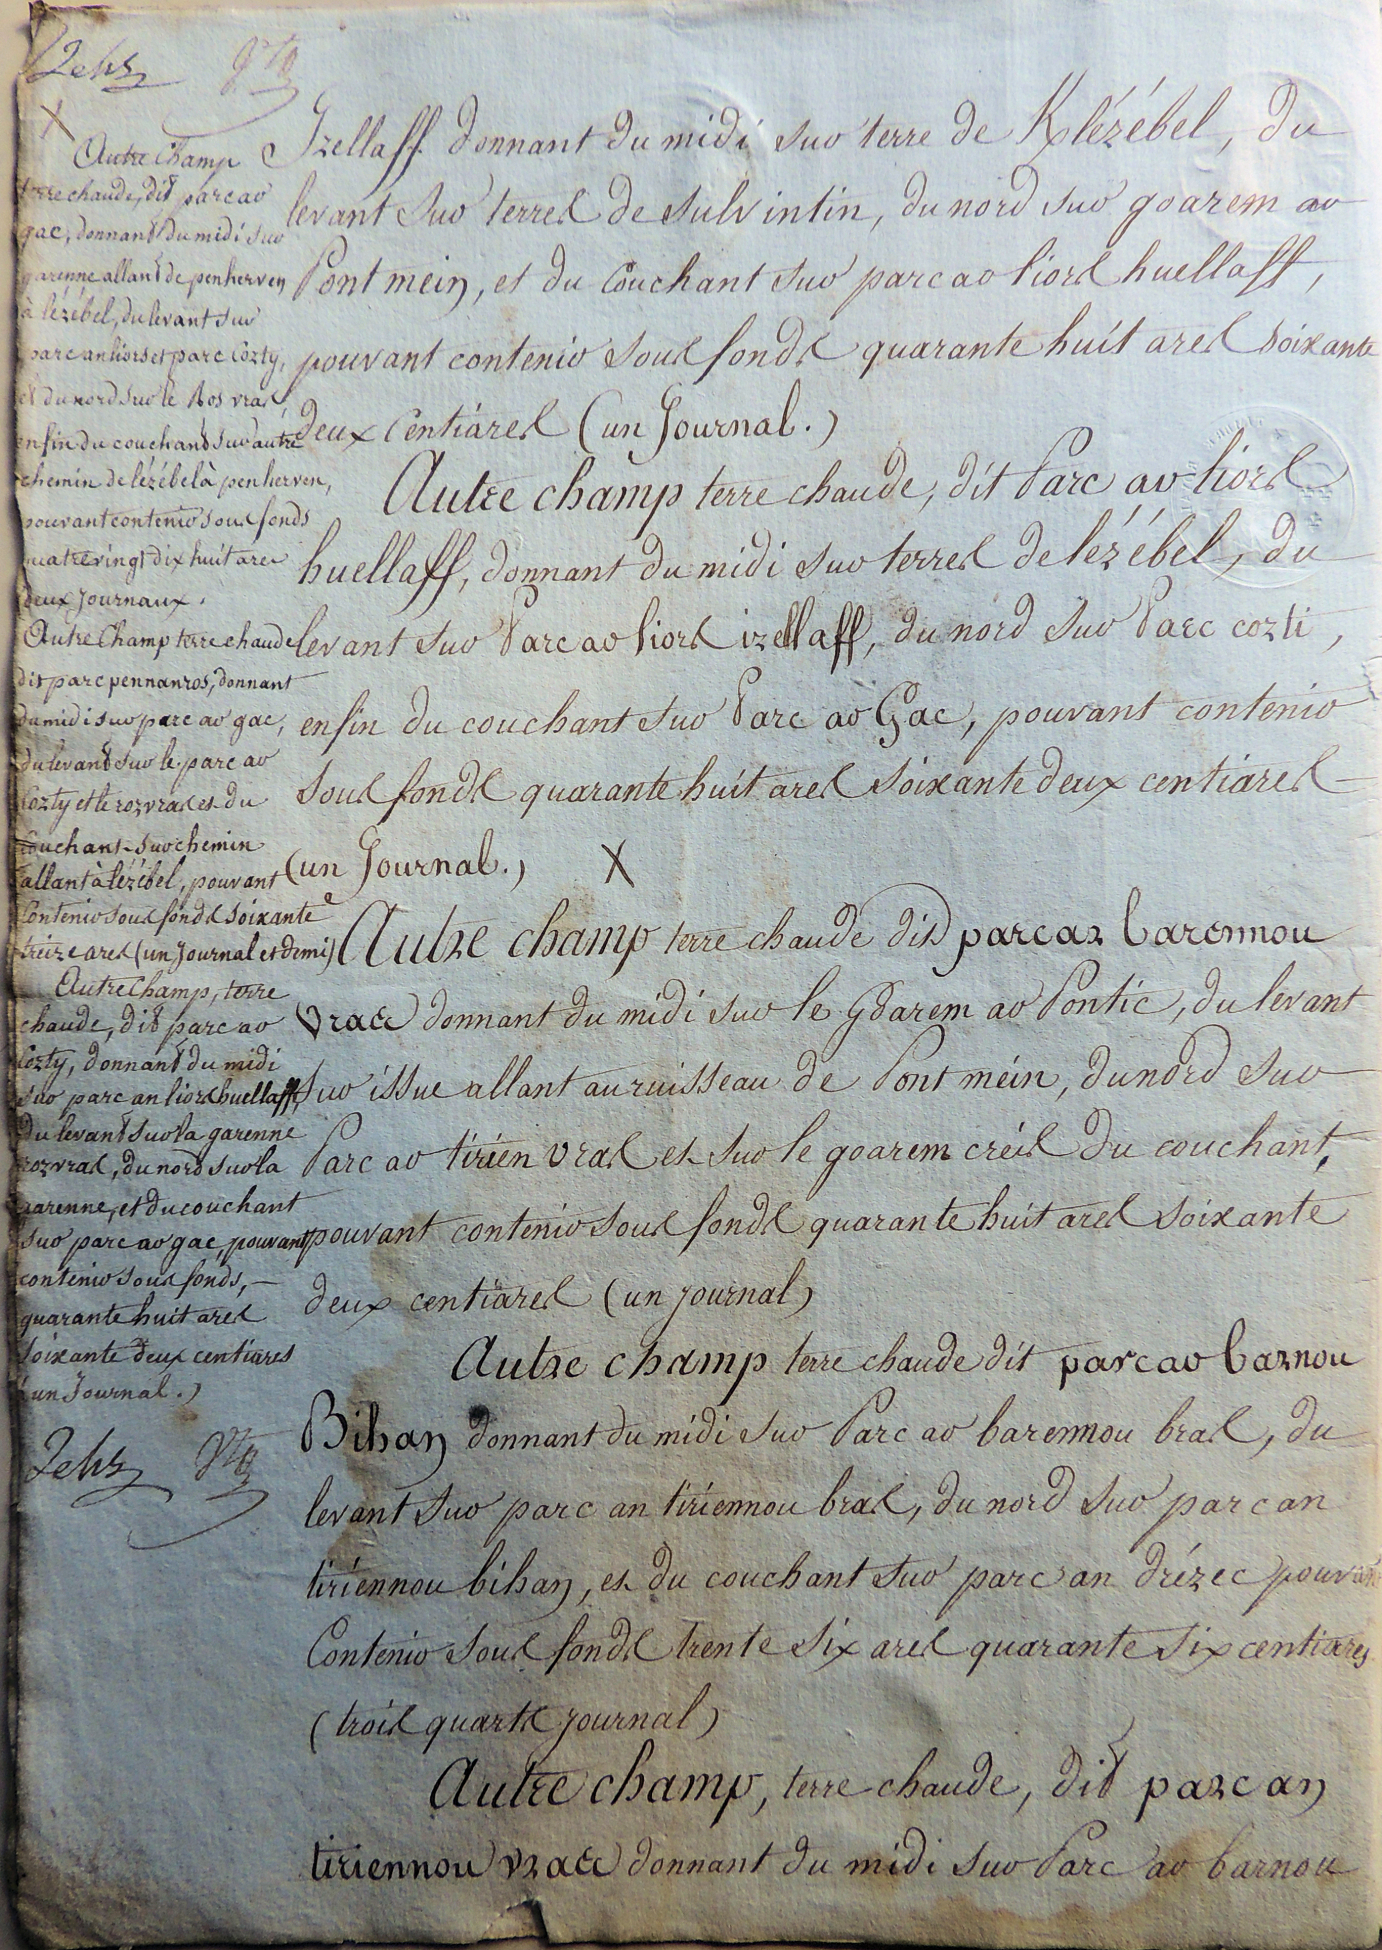 Izellaff donnant du midi sur terre de Klézébel, du
levant sur terres de sulvintin, du nord sur goarem ar
Pont mein, et du Couchant sur parc ar liors huellaff,
pouvant contenir sous fonds quarante huit ares soixante
deux Centiares (un Journal.)
Autre champ terre chaude, dit Parc ar liors
huellaff, donnant du midi sur terres de lézébel, du
levant sur Parc ar liors izellaff, du nord sur Parc cozti,
enfin du couchant sur Parc ar Gac, pouvant contenir
sous fonds quarante huit ares soixante deux centiares
(un Journal.) X
Autre champ terre chaude dit parc ar barennou
vras donnant du midi sur le Goarem ar Pontic, du levant
sur issue allant au ruisseau de Pont mein, du nord sur
Parc ar tirien vras et sur le goarem creis du couchant,
pouvant contenir sous fonds quarante huit ares soixante
deux centiares (un journal)
Autre champ terre chaude dit parc ar barnou
Bihan donnant du midi sur Parc ar barennou bras, du
levant sur parc an tiriennou bras, du nord sur parc an
tiriennou bihan, et du couchant sur parc an drézec pouvant
Contenir sous fonds trente six ares quarante six centiares
(trois quarts journal)
Autre champ, terre chaude, dit parc an
tiriennou vras donnant du midi sur Parc ar barnou
X
Autre Champ
terre chaude, dit parc ar
gac, donnant du midi sur
garenne allant de penherven
à lézébel, du levant sur
parc an liors et parc Cozty,
et du nord sur le Ros vras,
enfin du couchant sur autre
chemin de lézébel à penherven,
pouvant contenir sous fonds
quatre vingt dix huit ares
deux Journaux.
Autre Champ terre chaude
dit parc pennanros, donnant
du midi sur parc ar gac,
du levant sur le parc ar
Cozty et le rozvras et du
Couchant sur chemin
allant à lézébel, pouvant
Contenir sous fonds soixante
treize ares (un Journal et demi)
Autre Champ, terre
chaude, dit parc ar
Cozty, donnant du midi
sur parc an liors huellaff,
du levant sur la garenne
rozvras, du nord sur la
garenne, et du couchant
sur parc ar gac, pouvant
contenir sous fonds,
quarante huit ares
soixante deux centiares
(un Journal.)